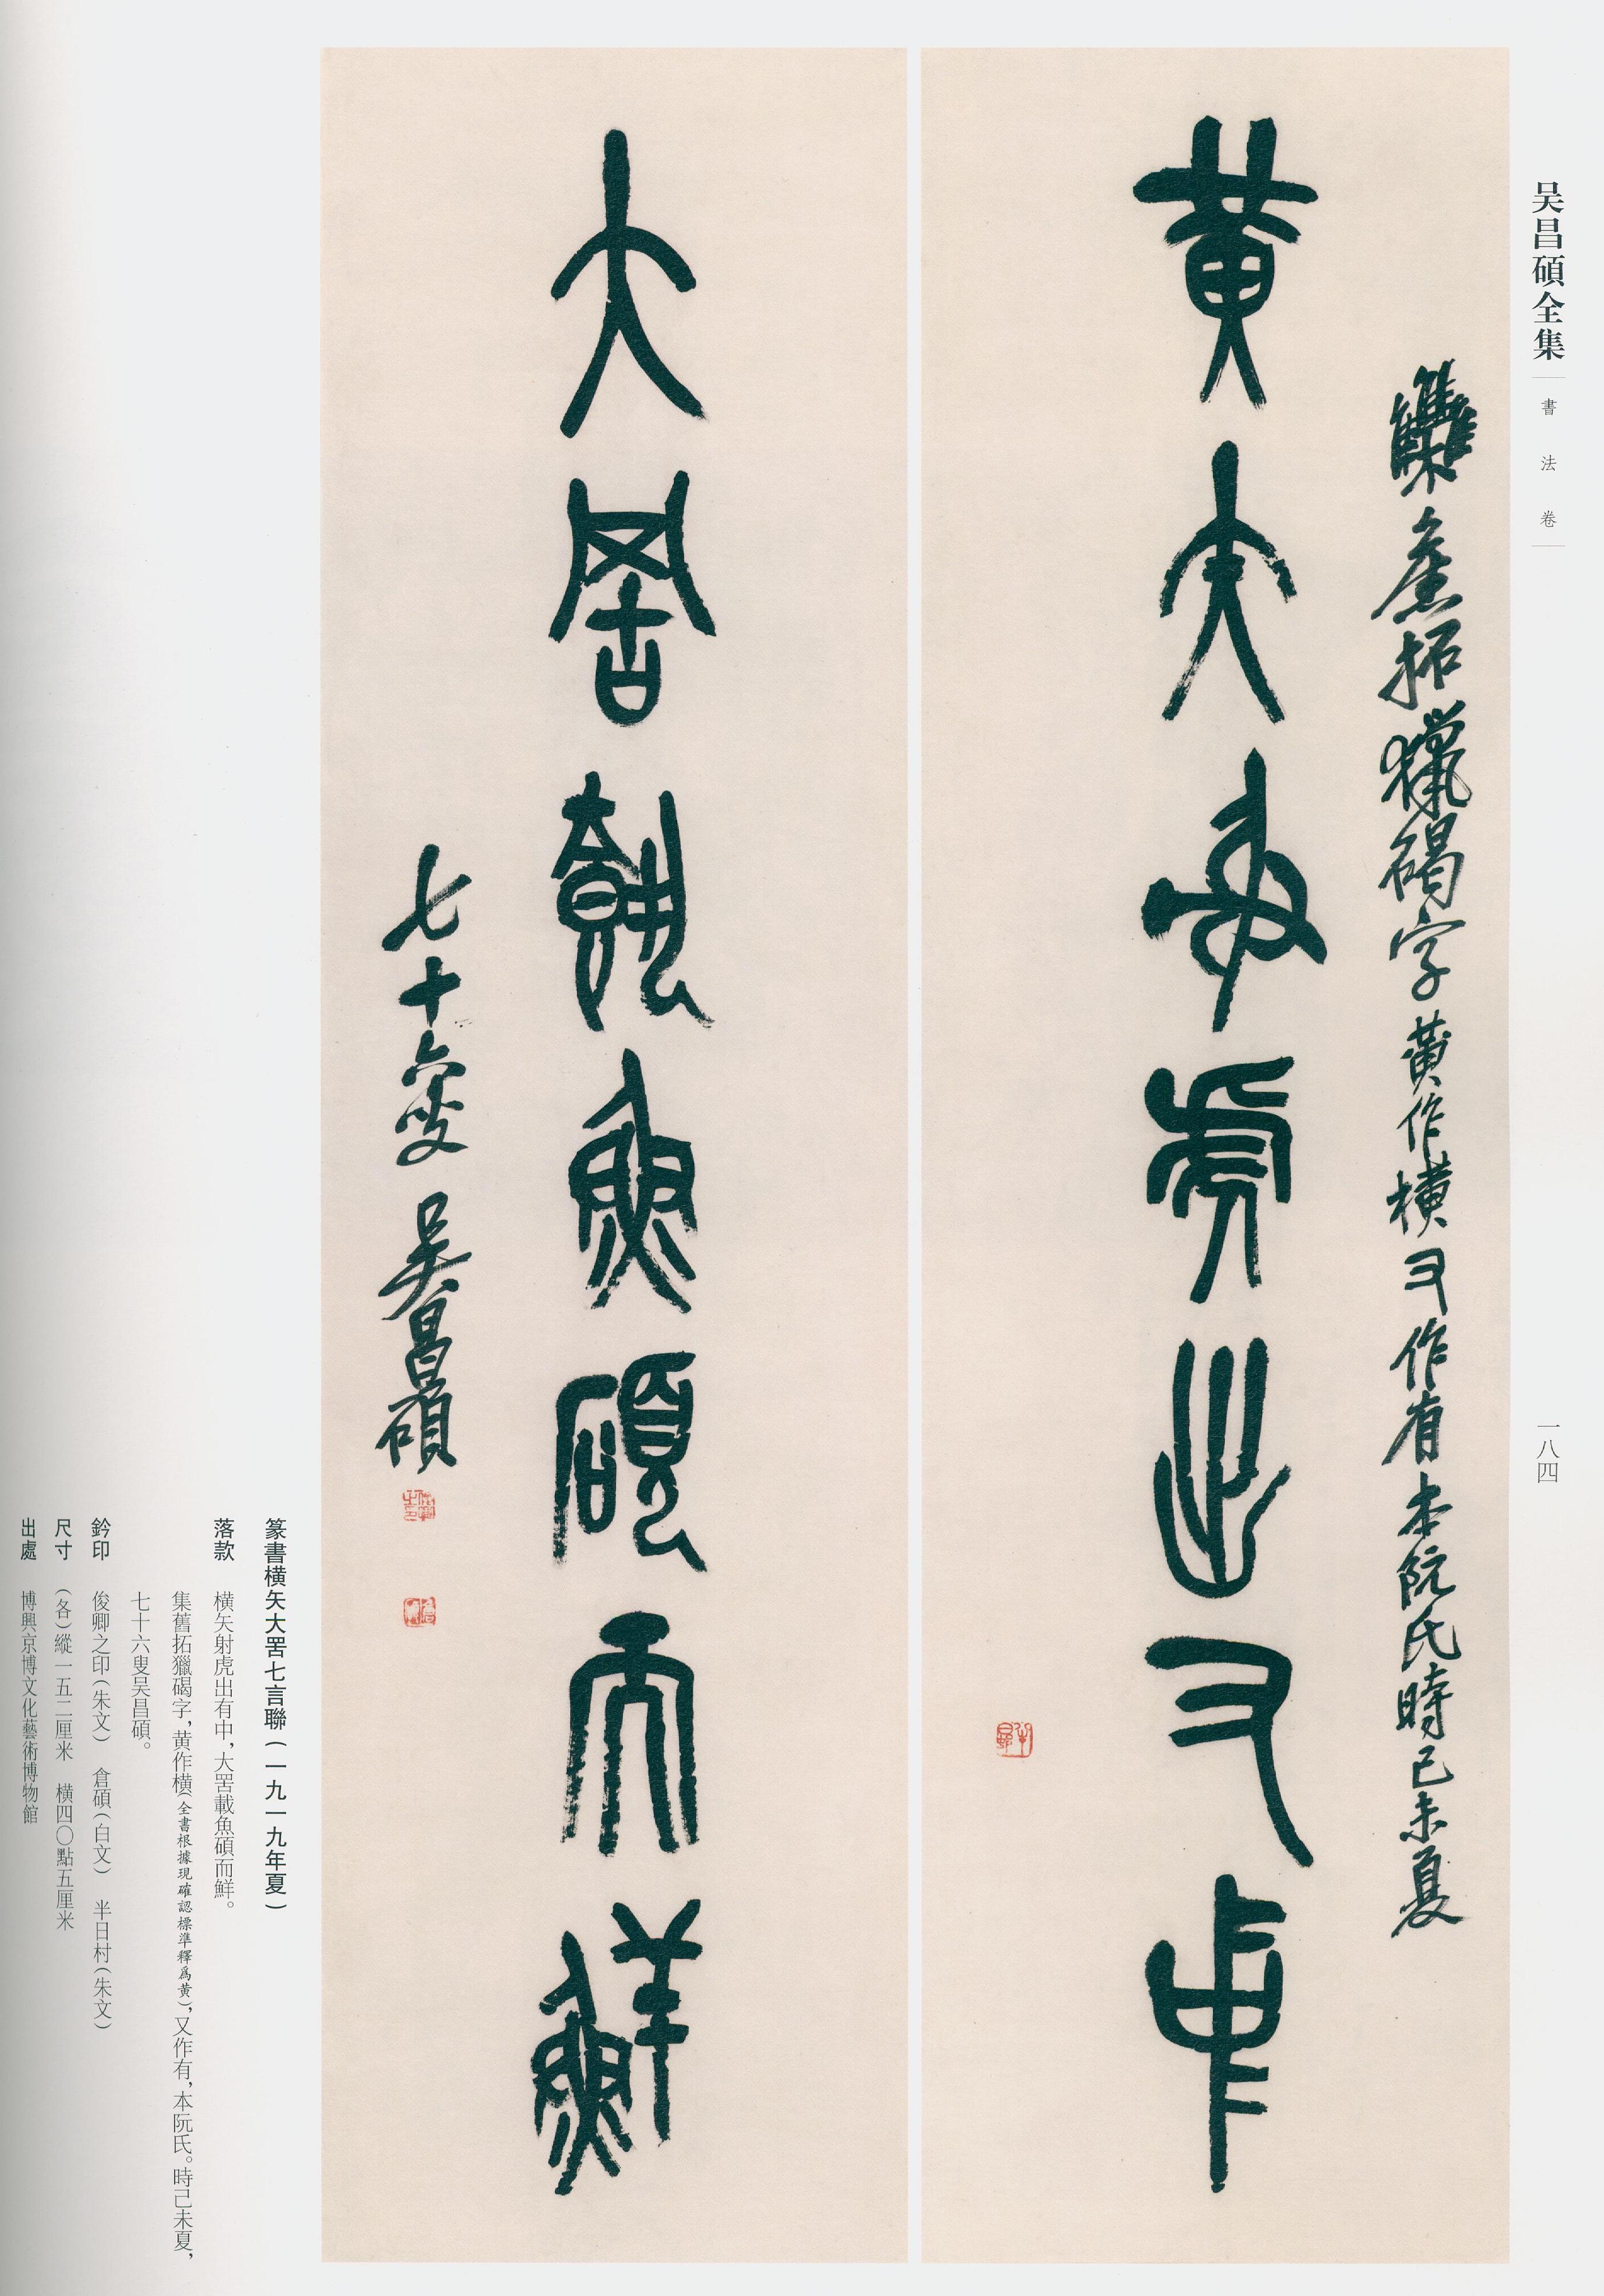 吴昌碩全集
書法卷
一八四
集舊拓獵碣字黄作横又作有本阮氏時己未夏
黄矢射虎出又中
大罟載魚碩而鮮
七十六叟吴昌碩
篆書横矢大罟七言聯(一九一九年夏)
落款 横矢射虎出有中,大罟載魚碩而鮮。
集舊拓獵碣字,黄作横(全書根據現確認標準釋爲黄),又作有,本阮氏。時己未夏,
七十六叟吴昌碩。
鈐印 俊卿之印(朱文) 倉碩(白文) 半日村(朱文)
尺寸 (各)縱一五二厘米 横四〇點五厘米
出處 博興京博文化藝術博物館